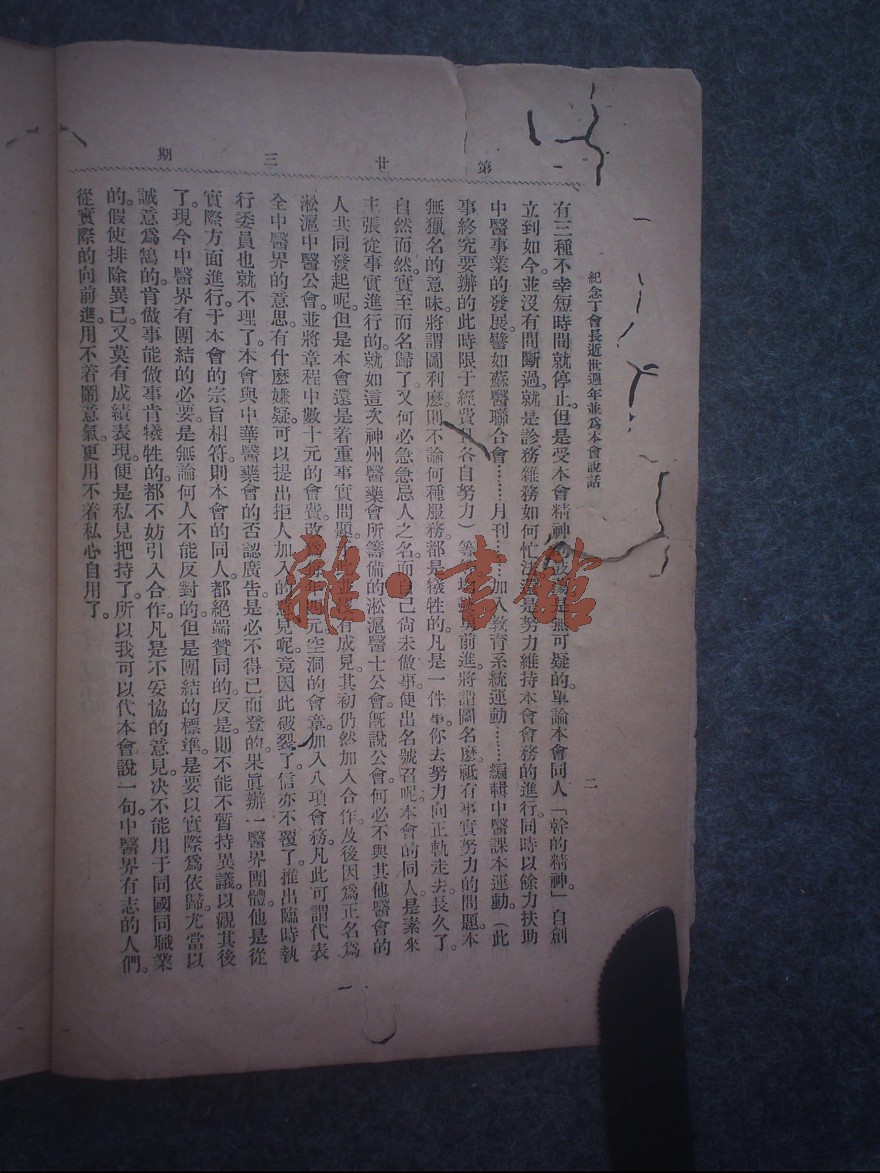 第廿三期
紀念丁會長近世週年並爲本會說話
二
有三種不幸短時間就停止。但是受本會精神是無可疑的。單論本會同人「幹的精神」自創
立到如今並沒有間斷過。就是診務雜務如何忙法還是努力維持本會會務的進行。同時以餘力扶助
中醫事業的發展。譬如蘇醫聯合會………月刊……加入教育系統運動………編輯中醫課本運動。(此
事終究要辦的此時限于經費各自努力)前進將謂圖名麽祇有事實努力的問題。本
無獵名的意味。將謂圖利麽則不論何種服務。都是犧牲的。凡是一件事你去努力向正軌走去。長久了。
自然而然。實至而名歸了。又何必急急忌人之名。而自己尙未做事。便出名號召呢。本會的同人。是素來
主張從事實進行的。就如這次神州醫藥會所籌備的淞滬醫士公會。旣說公會。何必不與其他醫會的
人共同發起呢。但是本會還是着重事實問題。並有成見。其初仍然加入合作。及後因爲正名爲
淞滬中醫公會。並將章程中數十元的會費。改爲元空洞的會章。加入八項會務。凡此可謂代表
全中醫界的意思。有什麽嫌疑。可以提出拒人加入的意見呢。竟因此破裂了。信亦不覆了。推出臨時執
行委員也就不理了。本會與中華醫藥會的否認廣告。是必不得已而登的。果眞辦一醫界團體。他是從
實際方面進行。于本會的宗旨相符。則本會的同人。都絕端贊同的。反是。則不能不暫持異議。以觀其後
了。現今中醫界有團結的必要。是無論何人不能反對的。但是團結的標準。是要以實際爲依歸。尤當以
誠意爲鵠的。肯做事能做事肯犧牲的。都不妨引入合作。凡是不妥協的意見。决不能用于同國同職業
的。假使排除異已。又莫有成績表現。便是私見把持了。所以我可以代本會說一句。中醫界有志的人們。
從實際的向前進。用不着鬧意氣。更用不着私心自用了。
雜·書館